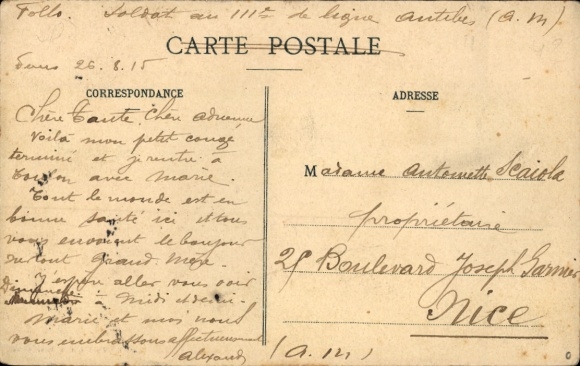 Follo. Soldat au 111e de ligne Antibes (A. M)
CARTE POSTALE
26. 8. 15
CORRESPONDANCE
Chère Tante Chère Adrienne
Voilà mon petit congé
terminé et je rentre à
Toulon avec Marie.
Tout le monde est en
bonne santé ici et tous
vous envoient le bonjour
surtout Grand Mère.
J'espère aller vous voir
Dimanche
à midi et demi.
Marie et moi nous
vous embrassons affectueusement
Alexandre
ADRESSE
Madame Antoinette Scaiola
propriétaire
25 Boulevard Joseph Garnier
Nice
(A. M)